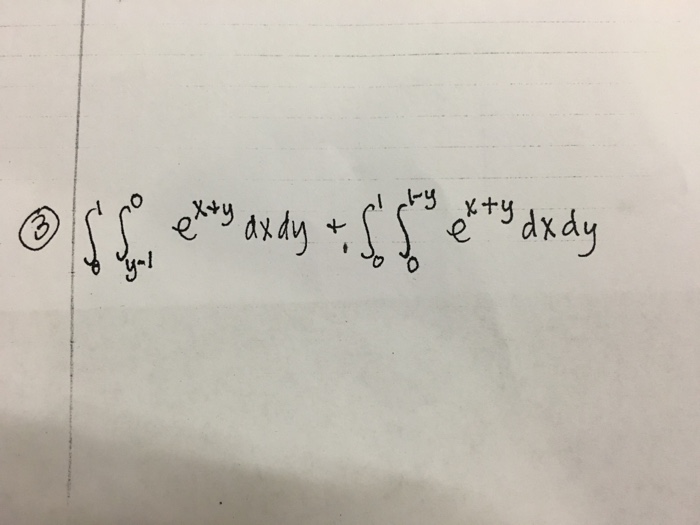 ③ ∫₀¹ ∫_{y-1}^{0} e^{x+y} dx dy + ∫₀¹ ∫₀^{1-y} e^{x+y} dx dy